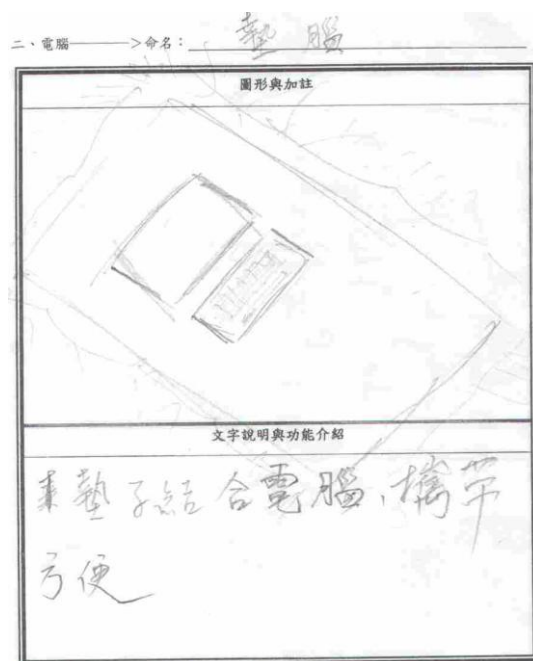 二、電腦————>命名：墊腦
圖形與加註
文字說明與功能介紹
墊子結合電腦，攜帶
方便